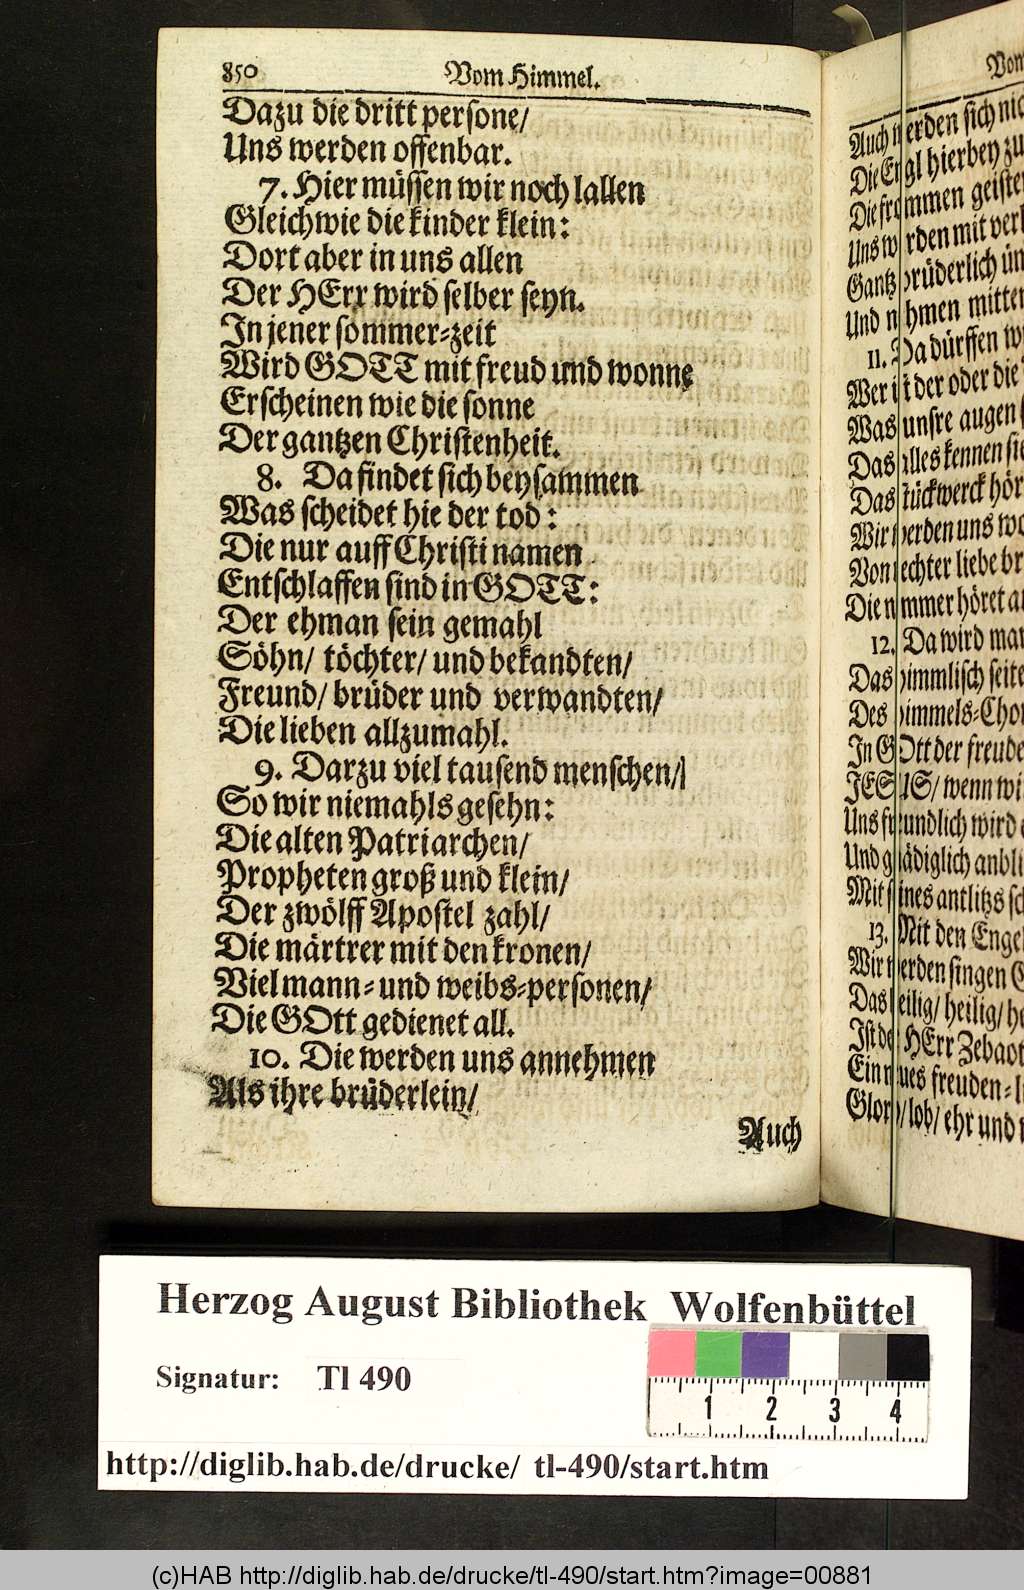 850 Vom Himmel.
Dazu die dritt persone/
Uns werden offenbar.
7. Hier müssen wir noch lallen
Gleichwie die kinder klein:
Dort aber in uns allen
Der HErr wird selber seyn.
In jener sommer-zeit
Wird GOTT mit freud und wonne
Erscheinen wie die sonne
Der gantzen Christenheit.
8. Da findet sich beysammen
Was scheidet hie der tod:
Die nur auff Christi namen
Entschlaffen sind in GOTT:
Der ehman sein gemahl
Söhn/ töchter/ und bekandten/
Freund/ brüder und verwandten/
Die lieben allzumahl.
9. Darzu viel tausend menschen/
So wir niemahls gesehn:
Die alten Patriarchen/
Propheten groß und klein/
Der zwölff Apostel zahl/
Die märtrer mit den kronen/
Viel mann- und weibs-personen/
Die GOtt gedienet all.
10. Die werden uns annehmen
Als ihre brüderlein/
Auch
Auch werden sich
Die Engl hierbey
Die frommen
Uns werden mit
Gantz brüderlich
Und nehmen
11. Da dürffen
Wer ist der oder die
Was unsre augen
Das alles kennen
Das stückwerck
Wir werden uns
Von rechter liebe
Die nimmer höret
12. Da wird
Das himmlisch
Des himmels-Chor
In GOtt der
JESUS/ wenn
Uns freundlich wird
Und gnädiglich
Mit seines antlitzs
13. Mit den
Wir werden singen
Das heilig/ heilig/
Ist der HErr
Ein neues freuden-
Glori/ lob/ ehr und
Herzog August Bibliothek Wolfenbüttel
Signatur: Tl 490
1 2 3 4
http://diglib.hab.de/drucke/ tl-490/start.htm
(c)HAB http://diglib.hab.de/drucke/tl-490/start.htm?image=00881